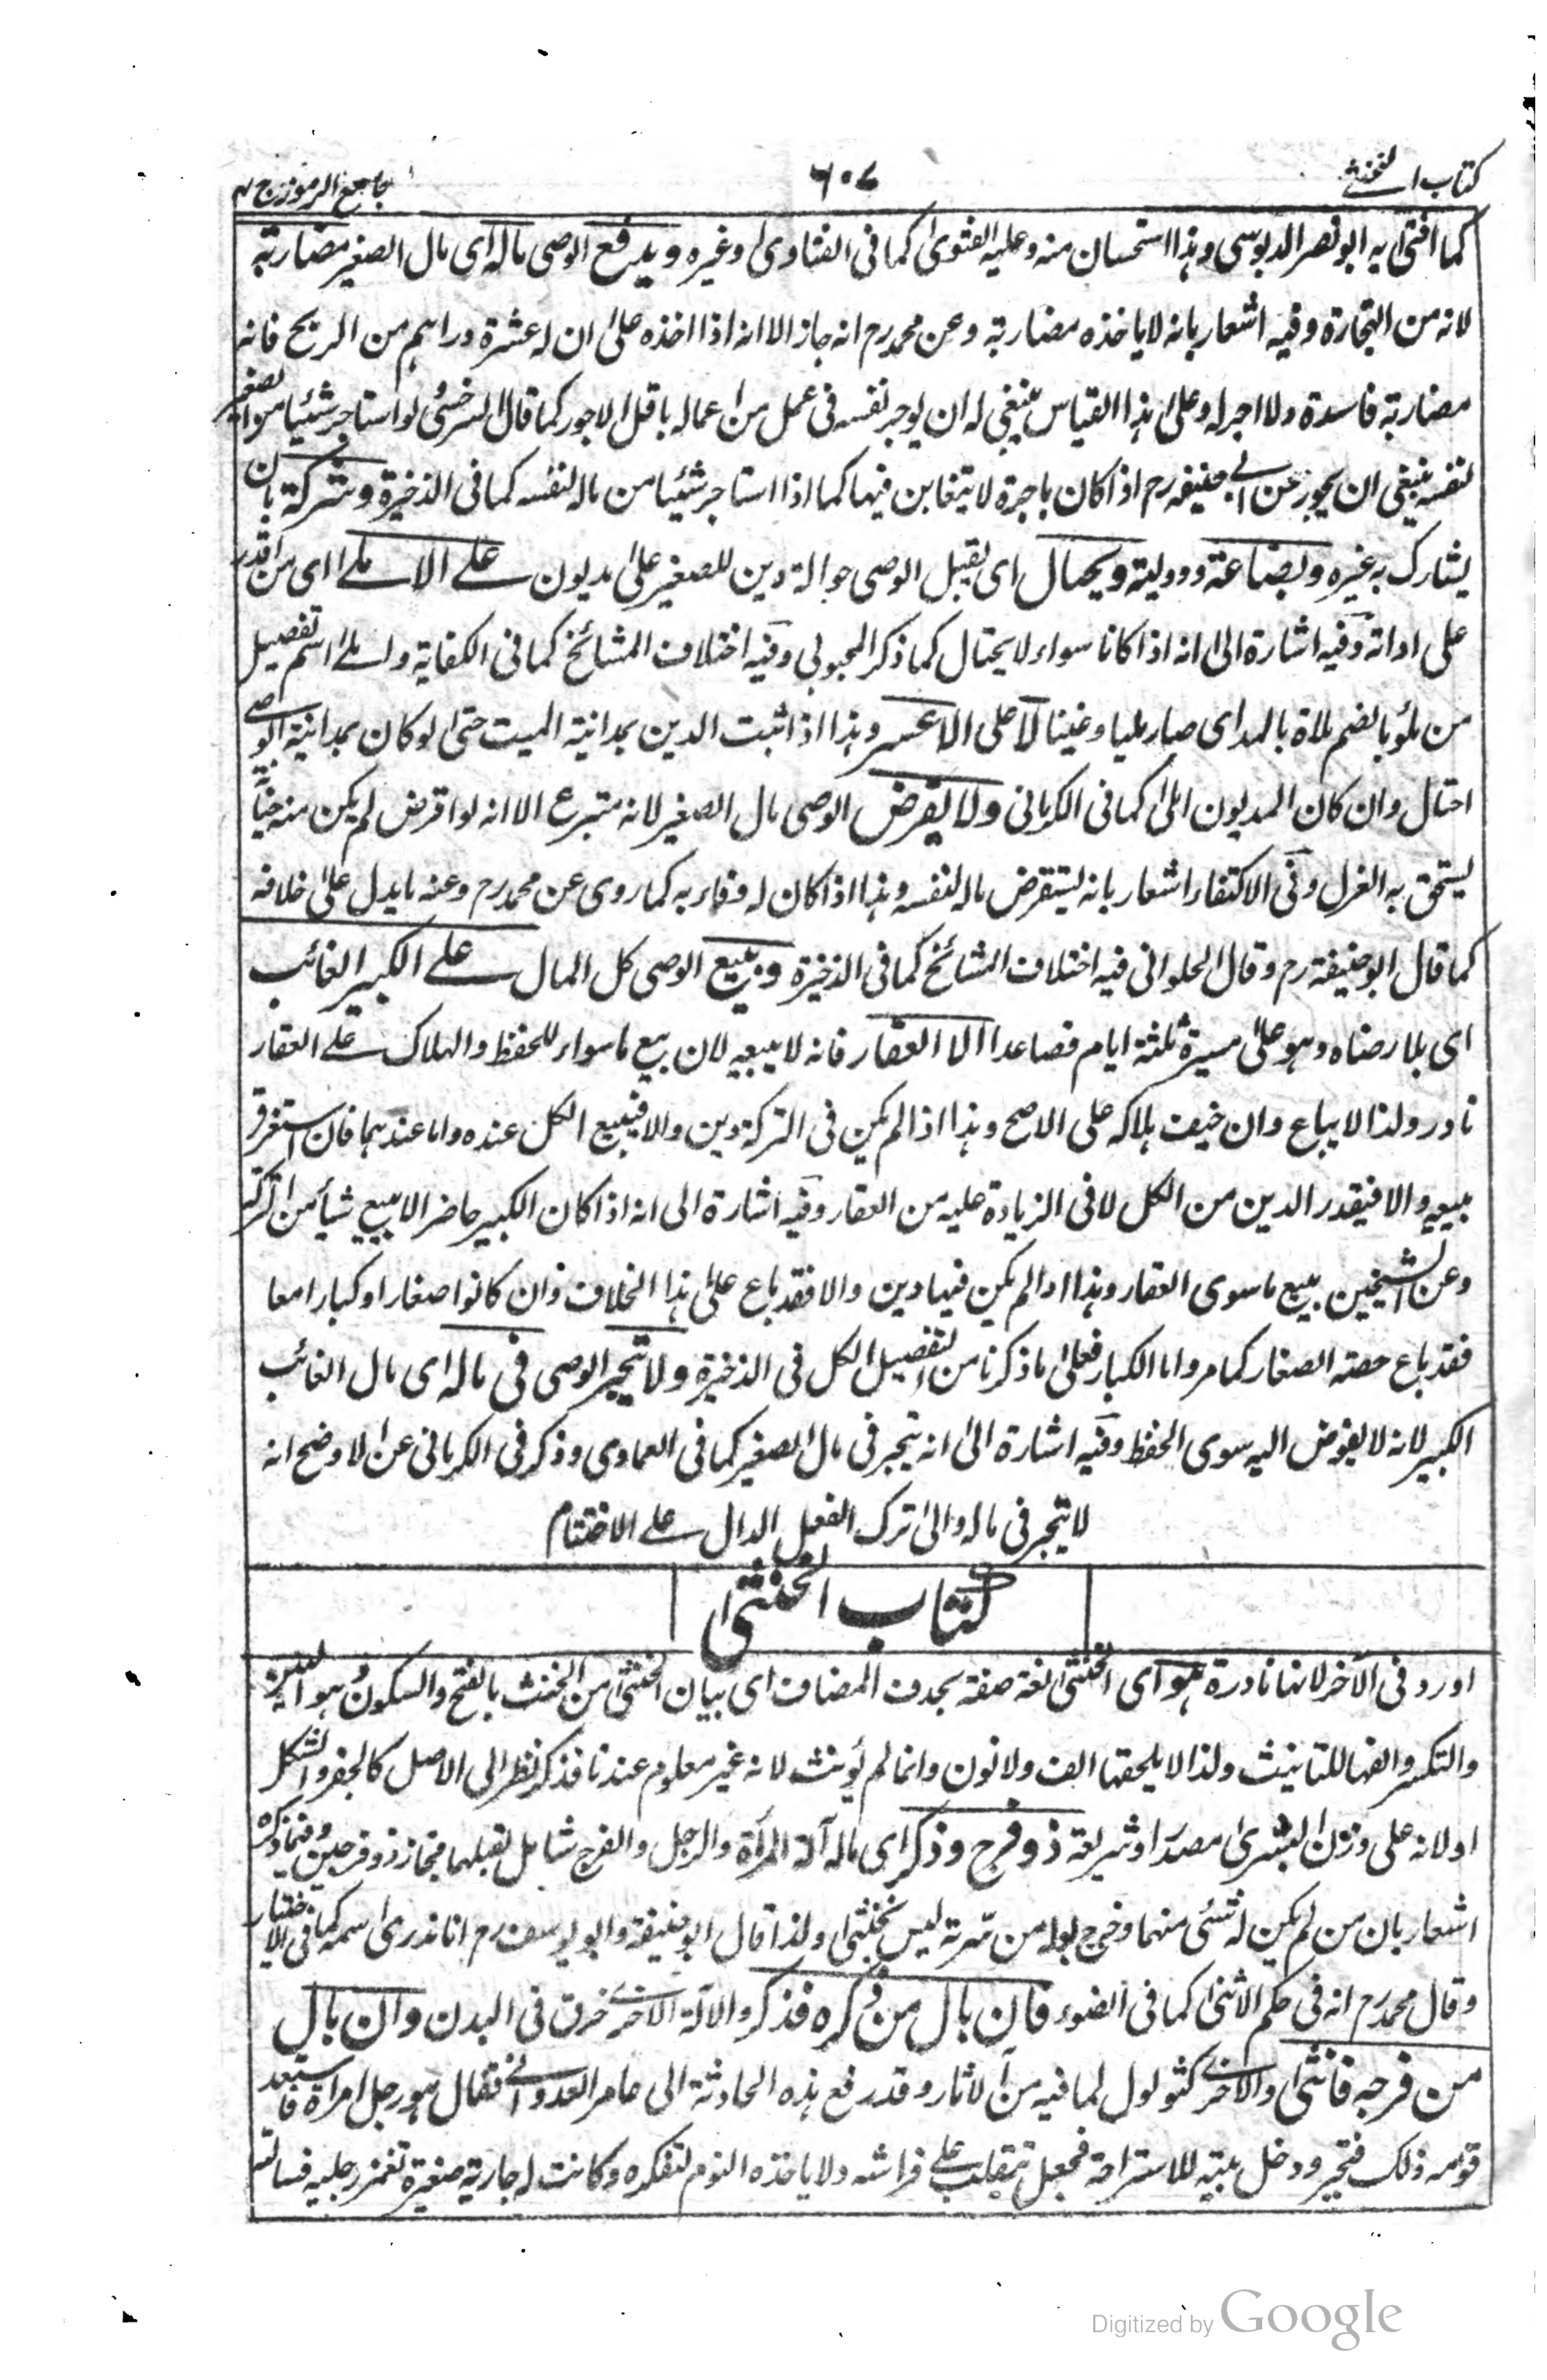 كتاب الخنثى
٦٠٧
جامع الرموز ج ٤
كما افتى به ابو نصر الدبوسى وهذا استحسان منه وعليه الفتوى كما فى الفتاوى وغيره ويدفع الوصى ماله اى مال الصغير مضاربة
لانه من التجارة وفيه اشعار بانه لا ياخذه مضاربة وعن محمد رح انه جاز الا انه اذا اخذه على ان له عشرة دراهم من الربح فانه
مضاربة فاسدة ولا اجر له وعلى هذا القياس ينبغى له ان يوجر نفسه فى عمل من اعماله باقل الاجور كما قال السرخسى لو استاجر شيئا من الصغير
لنفسه ينبغى ان يجوز عن ابى حنيفة رح اذا كان باجرة لا يتغابن فيها كما اذا استاجر شيئا من ماله لنفسه كما فى الذخيرة وشركة بان
يشارك به غيره وبضاعة ووديعة ويحتال اى يقبل الوصى حوالة دين للصغير على مديون على الاملأ اى من اقدر
على ادائه وفيه اشارة الى انه اذا كانا سواء لا يحتال كما ذكر المحبوبى وفيه اختلاف المشائخ كما فى الكفاية واملأ اسم تفصيل
من ملُؤ بالضم ملاة بالمد اى صار مليا وغنيا لا على الاعسر وهذا اذا ثبت الدين بمداينة الميت حتى لو كان بمداينة الوصى
احتال وان كان المديون املى كما فى الكرمانى ولا يقرض الوصى مال الصغير لانه متبرع الا انه لو اقرض لم يكن منه
يستحق به العزل وفى الاكتفاء اشعار بانه يستقرض ماله لنفسه وهذا اذا كان له وفاء به كما روى عن محمد رح وعنه ما يدل على خلافه
كما قال ابو حنيفة رح وقال الحلوانى فيه اختلاف المشائخ كما فى الذخيرة ويبيع الوصى كل المال على الكبير الغائب
اى بلا رضاه وهو على مسيرة ثلثة ايام فصاعدا الا العقار فانه لا يبيعه لان بيع ما سواه للحفظ والهلاك على العقار
نادر ولذا لا يباع وان خيف هلاكه على الاصح وهذا اذا لم يكن فى التركة دين والا فيبيع الكل عنده واما عندهما فان استغرق
يبيعه والا فيقدر الدين من الكل لا فى الزيادة عليه من العقار وفيه اشارة الى انه اذا كان الكبير حاضرا لا يبيع شيأ من التركة
وعن الشيخين يبيع ما سوى العقار وهذا اذا لم يكن فيها دين والا فقد باع على هذا الخلاف وان كانوا صغارا وكبارا معا
فقد باع حصة الصغار كما مر واما الكبار فعلى ما ذكرنا من التفصيل الكل فى الذخيرة ولا يتجر الوصى فى ماله اى مال الغائب
الكبير لانه لا يفوض اليه سوى الحفظ وفيه اشارة الى انه يتجر فى مال الصغير كما فى العمادى وذكر فى الكرمانى عن الاوضح انه
لا يتجر فى ماله والى ترك الفعل الدال على الاختتام
كتاب الخنثى
اورد فى الآخر لانها نادرة هو اى الخنثى لغة صفة بحذف المضاف اى بيان الخنثى من الخنث بالفتح والسكون هو اللين
والتكسر والفها للتانيث ولذا لا يلحقها الف ولا نون وانما لم يؤنث لانه غير معلوم عندنا فذكر نظرا الى الاصل كالجفر والشكل
او لانه على وزن البشرى مصدرا وشريعة ذو فرج وذكر اى ماله آلة المرأة والرجل والفرج شامل لقبلهما فمجاز ذو فرجين وفيما ذكره
اشعار بان من لم يكن له شئ منهما وخرج بوله من سرته ليس بخنثى ولذا قال ابو حنيفة وابو يوسف رح انا ندرى اسمه كما فى الاختيار
وقال محمد رح انه فى حكم الانثى كما فى الضوء فان بال من ذكره فذكر والآلة الاخرى خرق فى البدن وان بال
من فرجه فانثى والاخرى كثولول لما فيه من الآثار وقد رفع هذه الحادثة الى عامر العدوانى فقال هو رجل امراة فاستبعد
قومه ذلك فتحير ودخل بيته للاستراحة فجعل يتقلب على فراشه ولا ياخذه النوم لتفكره وكانت له جارية صغيرة تغمز رجليه فسالته
Digitized by Google